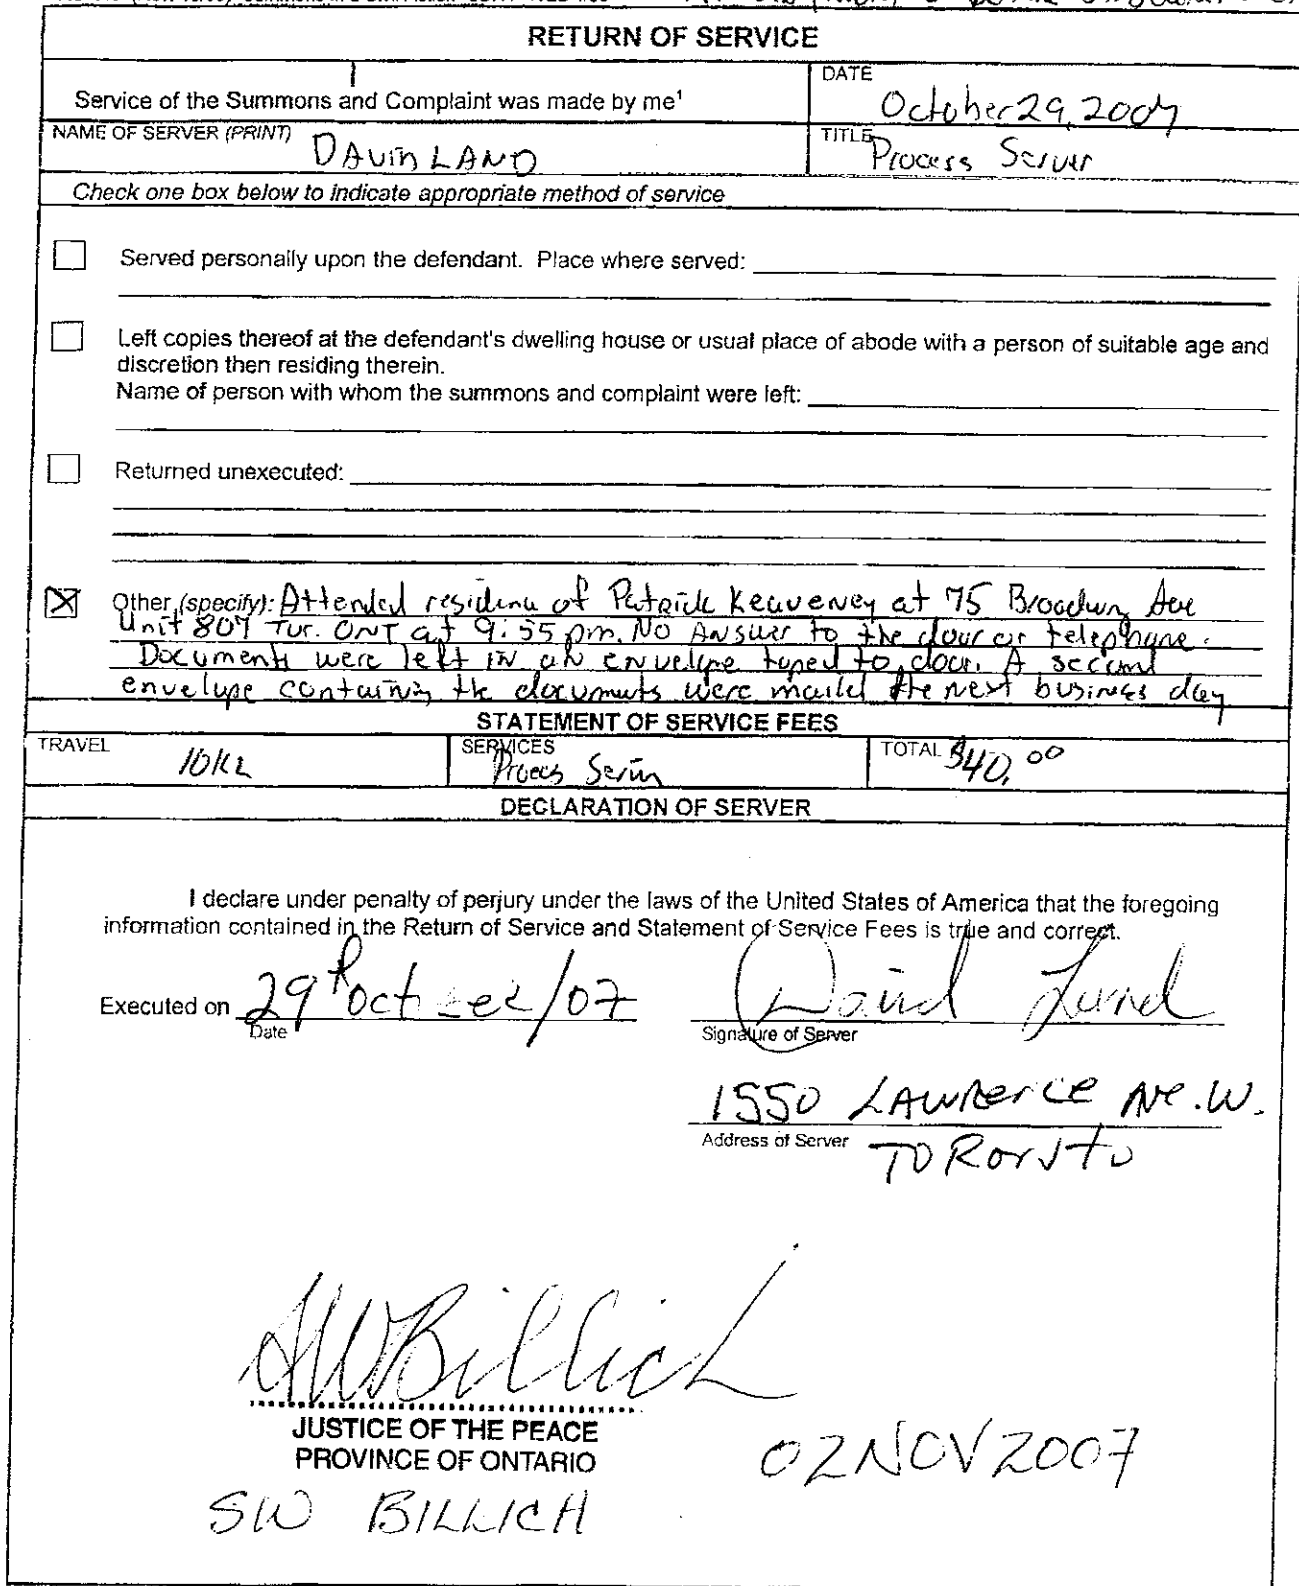 RETURN OF SERVICE
Service of the Summons and Complaint was made by me¹
DATE
October 29, 2007
NAME OF SERVER (PRINT)
DAvid LAND
TITLE
Process Server
Check one box below to indicate appropriate method of service
Served personally upon the defendant. Place where served:
Left copies thereof at the defendant's dwelling house or usual place of abode with a person of suitable age and
discretion then residing therein.
Name of person with whom the summons and complaint were left:
Returned unexecuted:
Other (specify): Attended residence of Patrick Keaveney at 75 Broadway Ave
Unit 807 Tor. ONT at 9:55 pm. No Answer to the door or telephone.
Documents were left in an envelope taped to door. A second
envelope containing the documents were mailed the next business day
STATEMENT OF SERVICE FEES
TRAVEL
SERVICES
Process
TOTAL
$40.00
DECLARATION OF SERVER
I declare under penalty of perjury under the laws of the United States of America that the foregoing
information contained in the Return of Service and Statement of Service Fees is true and correct.
Executed on 29 /07
Date
David Land
Signature of Server
1550 LAWRENCE Ave. W.
Address of Server
TORONTO
SWBillich
JUSTICE OF THE PEACE
PROVINCE OF ONTARIO
02 NOV 2007
SW BILLICH